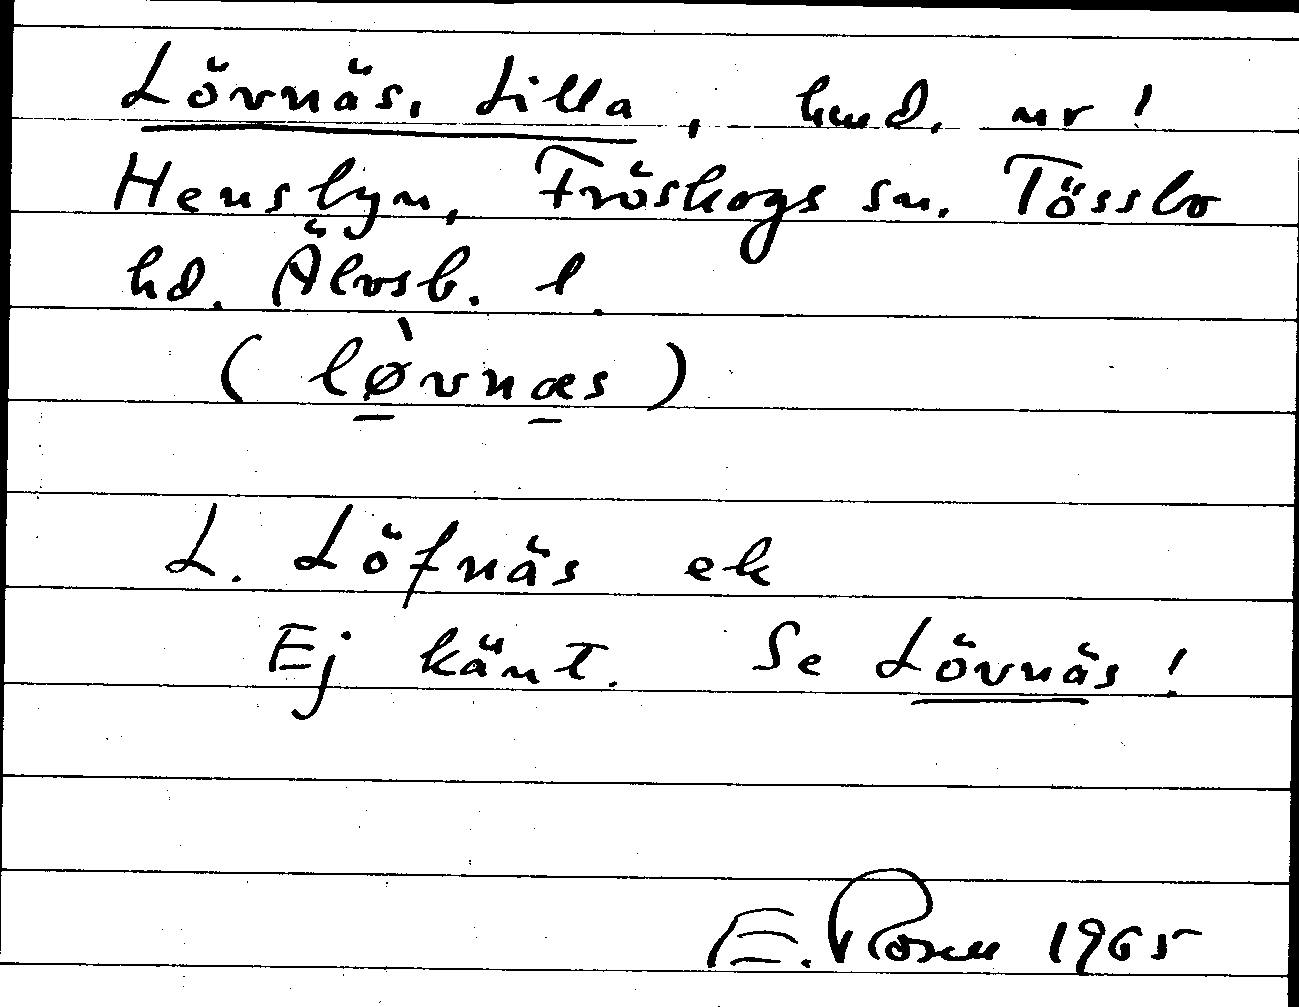 Lövnäs, Lilla, hmd. nr!
Henslyn, Fröskogs sn. Tössbo
hd. Älvsb. l.
(lø̀vnæs)
L. Löfnäs ek
Ej känt. Se Lövnäs!
E. Rosell 1965